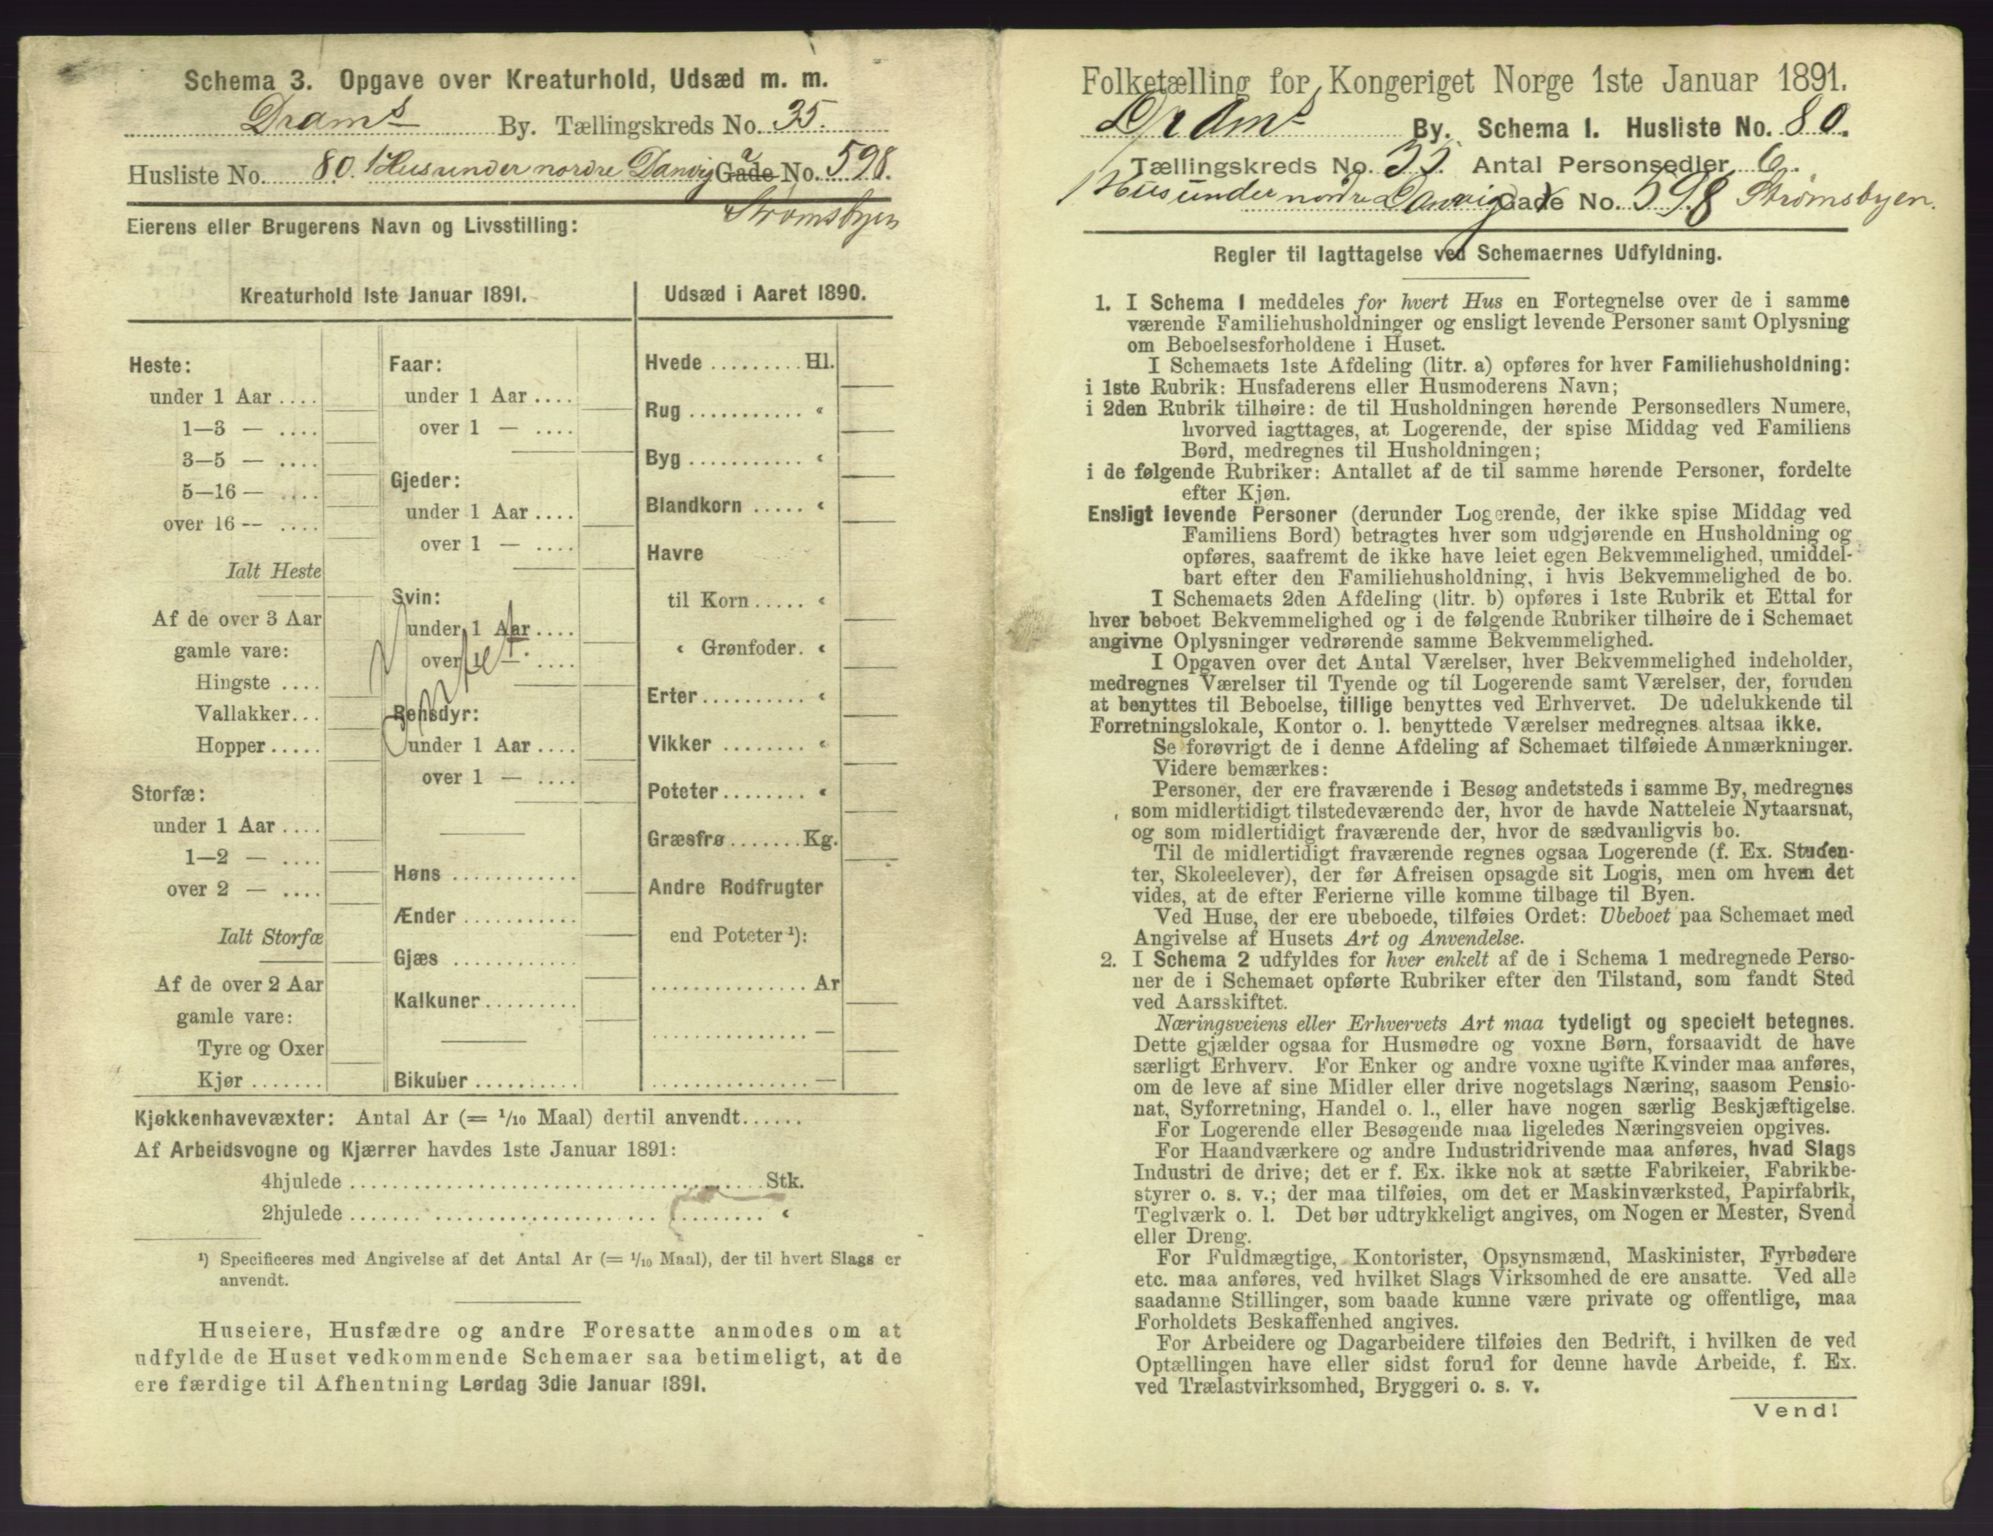 Schema 3. Opgave over Kreaturhold, Udsæd m. m.
Drams By. Tællingskreds No. 35.
Husliste No. 80. 1 Hus under nordre Danvig Gade No. 598.
Strømsbyen
Eierens eller Brugerens Navn og Livsstilling:
Kreaturhold 1ste Januar 1891.
Heste:
under 1 Aar ....
1—3 — ....
3—5 — ....
5—16 — ....
over 16 — ....
Ialt Heste
Af de over 3 Aar
gamle vare:
Hingste ....
Vallakker...
Hopper.....
Storfæ:
under 1 Aar ....
1—2 — ....
over 2 — ....
Ialt Storfæ
Af de over 2 Aar
gamle vare:
Tyre og Oxer
Kjør.......
Faar:
under 1 Aar ....
over 1 — ....
Gjeder:
under 1 Aar ....
over 1 — ....
Svin:
under 1 Aar ....
over 1 — ....
Rensdyr:
under 1 Aar ....
over 1 — ....
Høns ............
Ænder ...........
Gjæs ............
Kalkuner.........
Bikuber..........
Udsæd i Aaret 1890.
Hvede ......... Hl.
Rug ........... «
Byg ........... «
Blandkorn ..... «
Havre
til Korn ..... «
« Grønfoder. «
Erter.......... «
Vikker ........ «
Poteter........ «
Græsfrø ....... Kg.
Andre Rodfrugter
end Poteter ¹):
............... Ar
............... —
............... —
Kjøkkenhavevæxter: Antal Ar (= 1/10 Maal) dertil anvendt......
Af Arbeidsvogne og Kjærrer havdes 1ste Januar 1891:
4hjulede ........................................ Stk.
2hjulede ........................................ «
¹) Specificeres med Angivelse af det Antal Ar (= 1/10 Maal), der til hvert Slags er
anvendt.
Huseiere, Husfædre og andre Foresatte anmodes om at
udfylde de Huset vedkommende Schemaer saa betimeligt, at de
ere færdige til Afhentning Lørdag 3die Januar 1891.
Folketælling for Kongeriget Norge 1ste Januar 1891.
Drams By. Schema 1. Husliste No. 80.
Tællingskreds No. 35. Antal Personsedler 6.
1 Hus under nordre Danvig Gade No. 598 Strømsbyen.
Regler til Iagttagelse ved Schemaernes Udfyldning.
1. I Schema 1 meddeles for hvert Hus en Fortegnelse over de i samme
værende Familiehusholdninger og ensligt levende Personer samt Oplysning
om Beboelsesforholdene i Huset.
I Schemaets 1ste Afdeling (litr. a) opføres for hver Familiehusholdning:
i 1ste Rubrik: Husfaderens eller Husmoderens Navn;
i 2den Rubrik tilhøire: de til Husholdningen hørende Personsedlers Numere,
hvorved iagttages, at Logerende, der spise Middag ved Familiens
Bord, medregnes til Husholdningen;
i de følgende Rubriker: Antallet af de til samme hørende Personer, fordelte
efter Kjøn.
Ensligt levende Personer (derunder Logerende, der ikke spise Middag ved
Familiens Bord) betragtes hver som udgjørende en Husholdning og
opføres, saafremt de ikke have leiet egen Bekvemmelighed, umiddel-
bart efter den Familiehusholdning, i hvis Bekvemmelighed de bo.
I Schemaets 2den Afdeling (litr. b) opføres i 1ste Rubrik et Ettal for
hver beboet Bekvemmelighed og i de følgende Rubriker tilhøire de i Schemaet
angivne Oplysninger vedrørende samme Bekvemmelighed.
I Opgaven over det Antal Værelser, hver Bekvemmelighed indeholder,
medregnes Værelser til Tyende og til Logerende samt Værelser, der, foruden
at benyttes til Beboelse, tillige benyttes ved Erhvervet. De udelukkende til
Forretningslokale, Kontor o. l. benyttede Værelser medregnes altsaa ikke.
Se forøvrigt de i denne Afdeling af Schemaet tilføiede Anmærkninger.
Videre bemærkes:
Personer, der ere fraværende i Besøg andetsteds i samme By, medregnes
som midlertidigt tilstedeværende der, hvor de havde Natteleie Nytaarsnat,
og som midlertidigt fraværende der, hvor de sædvanligvis bo.
Til de midlertidigt fraværende regnes ogsaa Logerende (f. Ex. Studen-
ter, Skoleelever), der før Afreisen opsagde sit Logis, men om hvem det
vides, at de efter Ferierne ville komme tilbage til Byen.
Ved Huse, der ere ubeboede, tilføies Ordet: Ubeboet paa Schemaet med
Angivelse af Husets Art og Anvendelse.
2. I Schema 2 udfyldes for hver enkelt af de i Schema 1 medregnede Perso-
ner de i Schemaet opførte Rubriker efter den Tilstand, som fandt Sted
ved Aarsskiftet.
Næringsveiens eller Erhvervets Art maa tydeligt og specielt betegnes.
Dette gjælder ogsaa for Husmødre og voxne Børn, forsaavidt de have
særligt Erhverv. For Enker og andre voxne ugifte Kvinder maa anføres,
om de leve af sine Midler eller drive nogetslags Næring, saasom Pensio-
nat, Syforretning, Handel o. l., eller have nogen særlig Beskjæftigelse.
For Logerende eller Besøgende maa ligeledes Næringsveien opgives.
For Haandværkere og andre Industridrivende maa anføres, hvad Slags
Industri de drive; det er f. Ex. ikke nok at sætte Fabrikeier, Fabrikbe-
styrer o. s. v.; der maa tilføies, om det er Maskinværksted, Papirfabrik,
Teglværk o. l. Det bør udtrykkeligt angives, om Nogen er Mester, Svend
eller Dreng.
For Fuldmægtige, Kontorister, Opsynsmænd, Maskinister, Fyrbødere
etc. maa anføres, ved hvilket Slags Virksomhed de ere ansatte. Ved alle
saadanne Stillinger, som baade kunne være private og offentlige, maa
Forholdets Beskaffenhed angives.
For Arbeidere og Dagarbeidere tilføies den Bedrift, i hvilken de ved
Optællingen have eller sidst forud for denne havde Arbeide, f. Ex.
ved Trælastvirksomhed, Bryggeri o. s. v.
Vend!